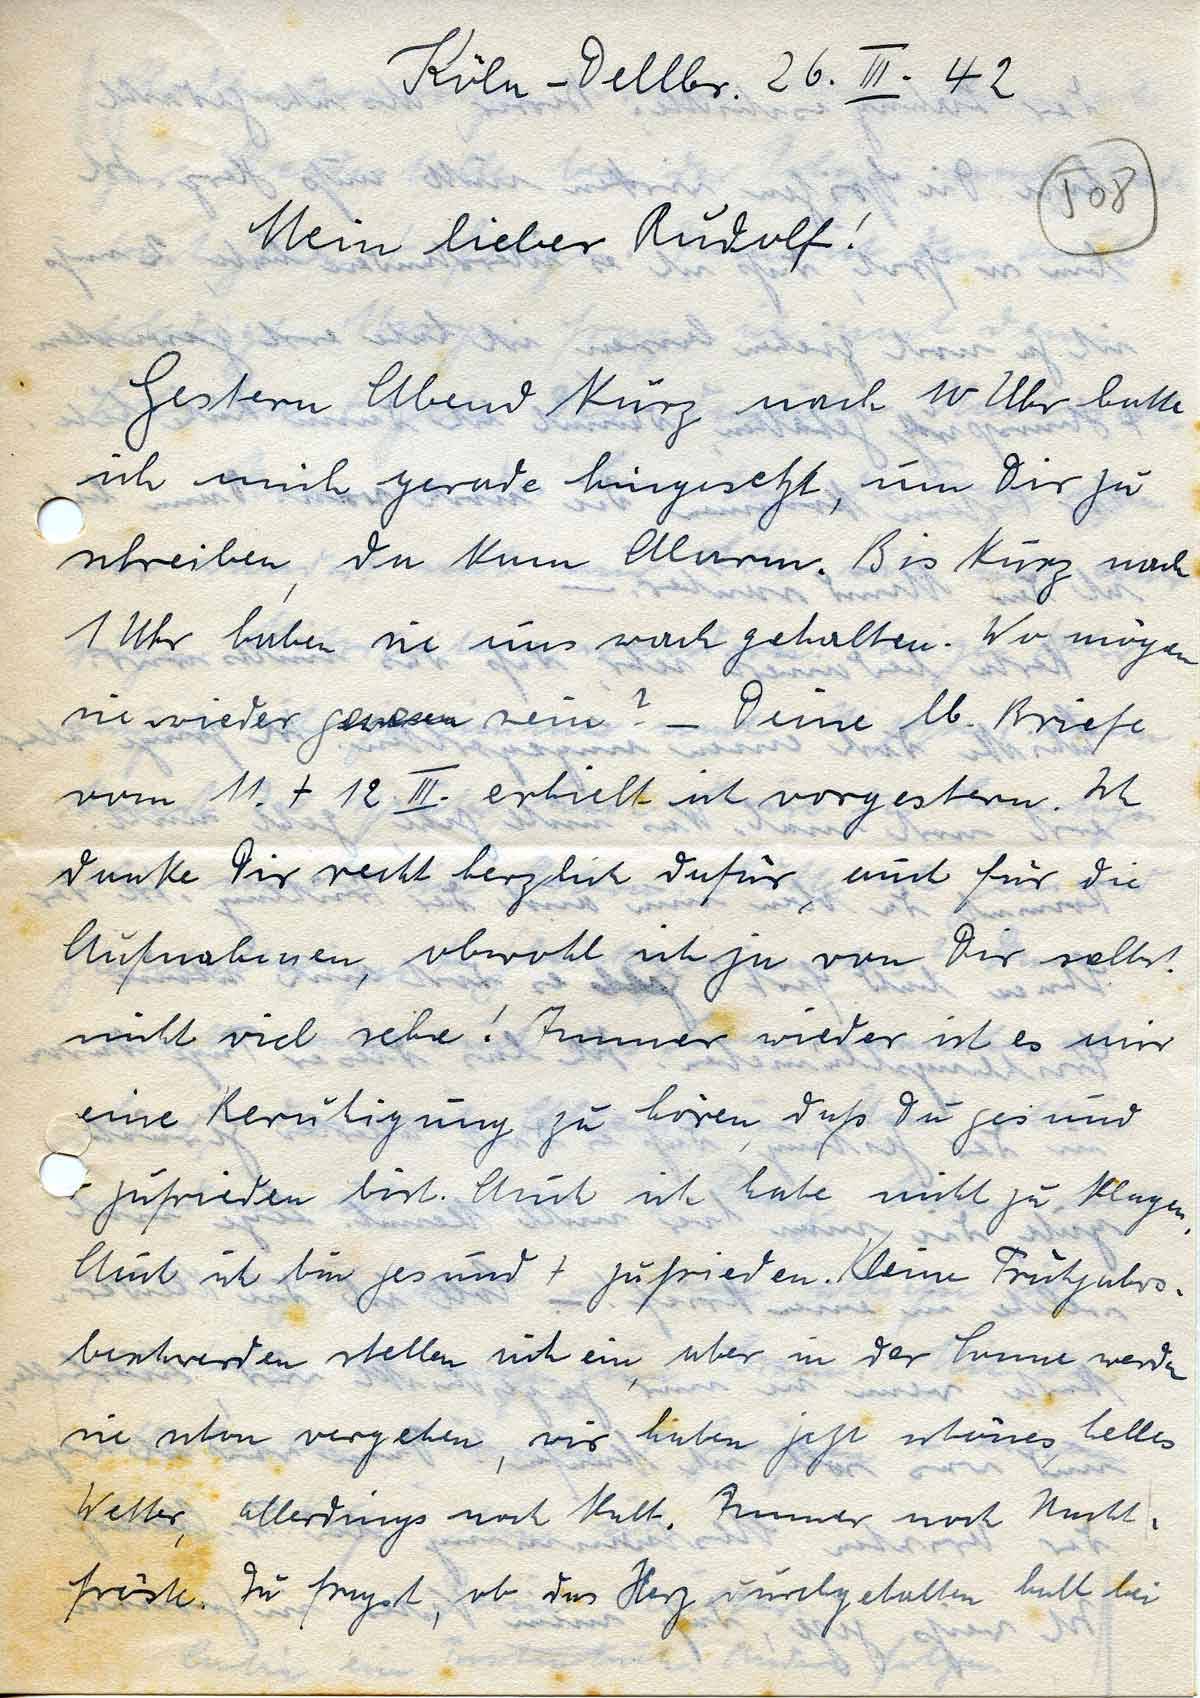 Köln-Dellbr. 26. III. 42
508
Mein lieber Rudolf!
Gestern Abend kurz nach 10 Uhr hatte
ich mich gerade hingesetzt, um Dir zu
schreiben, da kam Alarm. Bis kurz nach
1 Uhr haben sie uns wach gehalten. Wo mögen
sie wieder gewesen sein? – Deine lb. Briefe
vom 11. + 12 III. erhielt ich vorgestern. Ich
danke Dir recht herzlich dafür, auch für die
Aufnahmen, obwohl ich ja von Dir selbst
nicht viel sehe! Immer wieder ist es mir
eine Beruhigung zu hören, daß Du gesund
+ zufrieden bist. Auch ich habe nicht zu klagen.
Auch ich bin gesund + zufrieden. Kleine Frühjahrs-
beschwerden stellen sich ein, aber in der Sonne werden
sie schon vergehen, wir haben jetzt schönes, helles
Wetter, allerdings noch kalt. Immer noch Nacht-
fröste. Du fragst, ob das Herz durchgehalten hatt bei